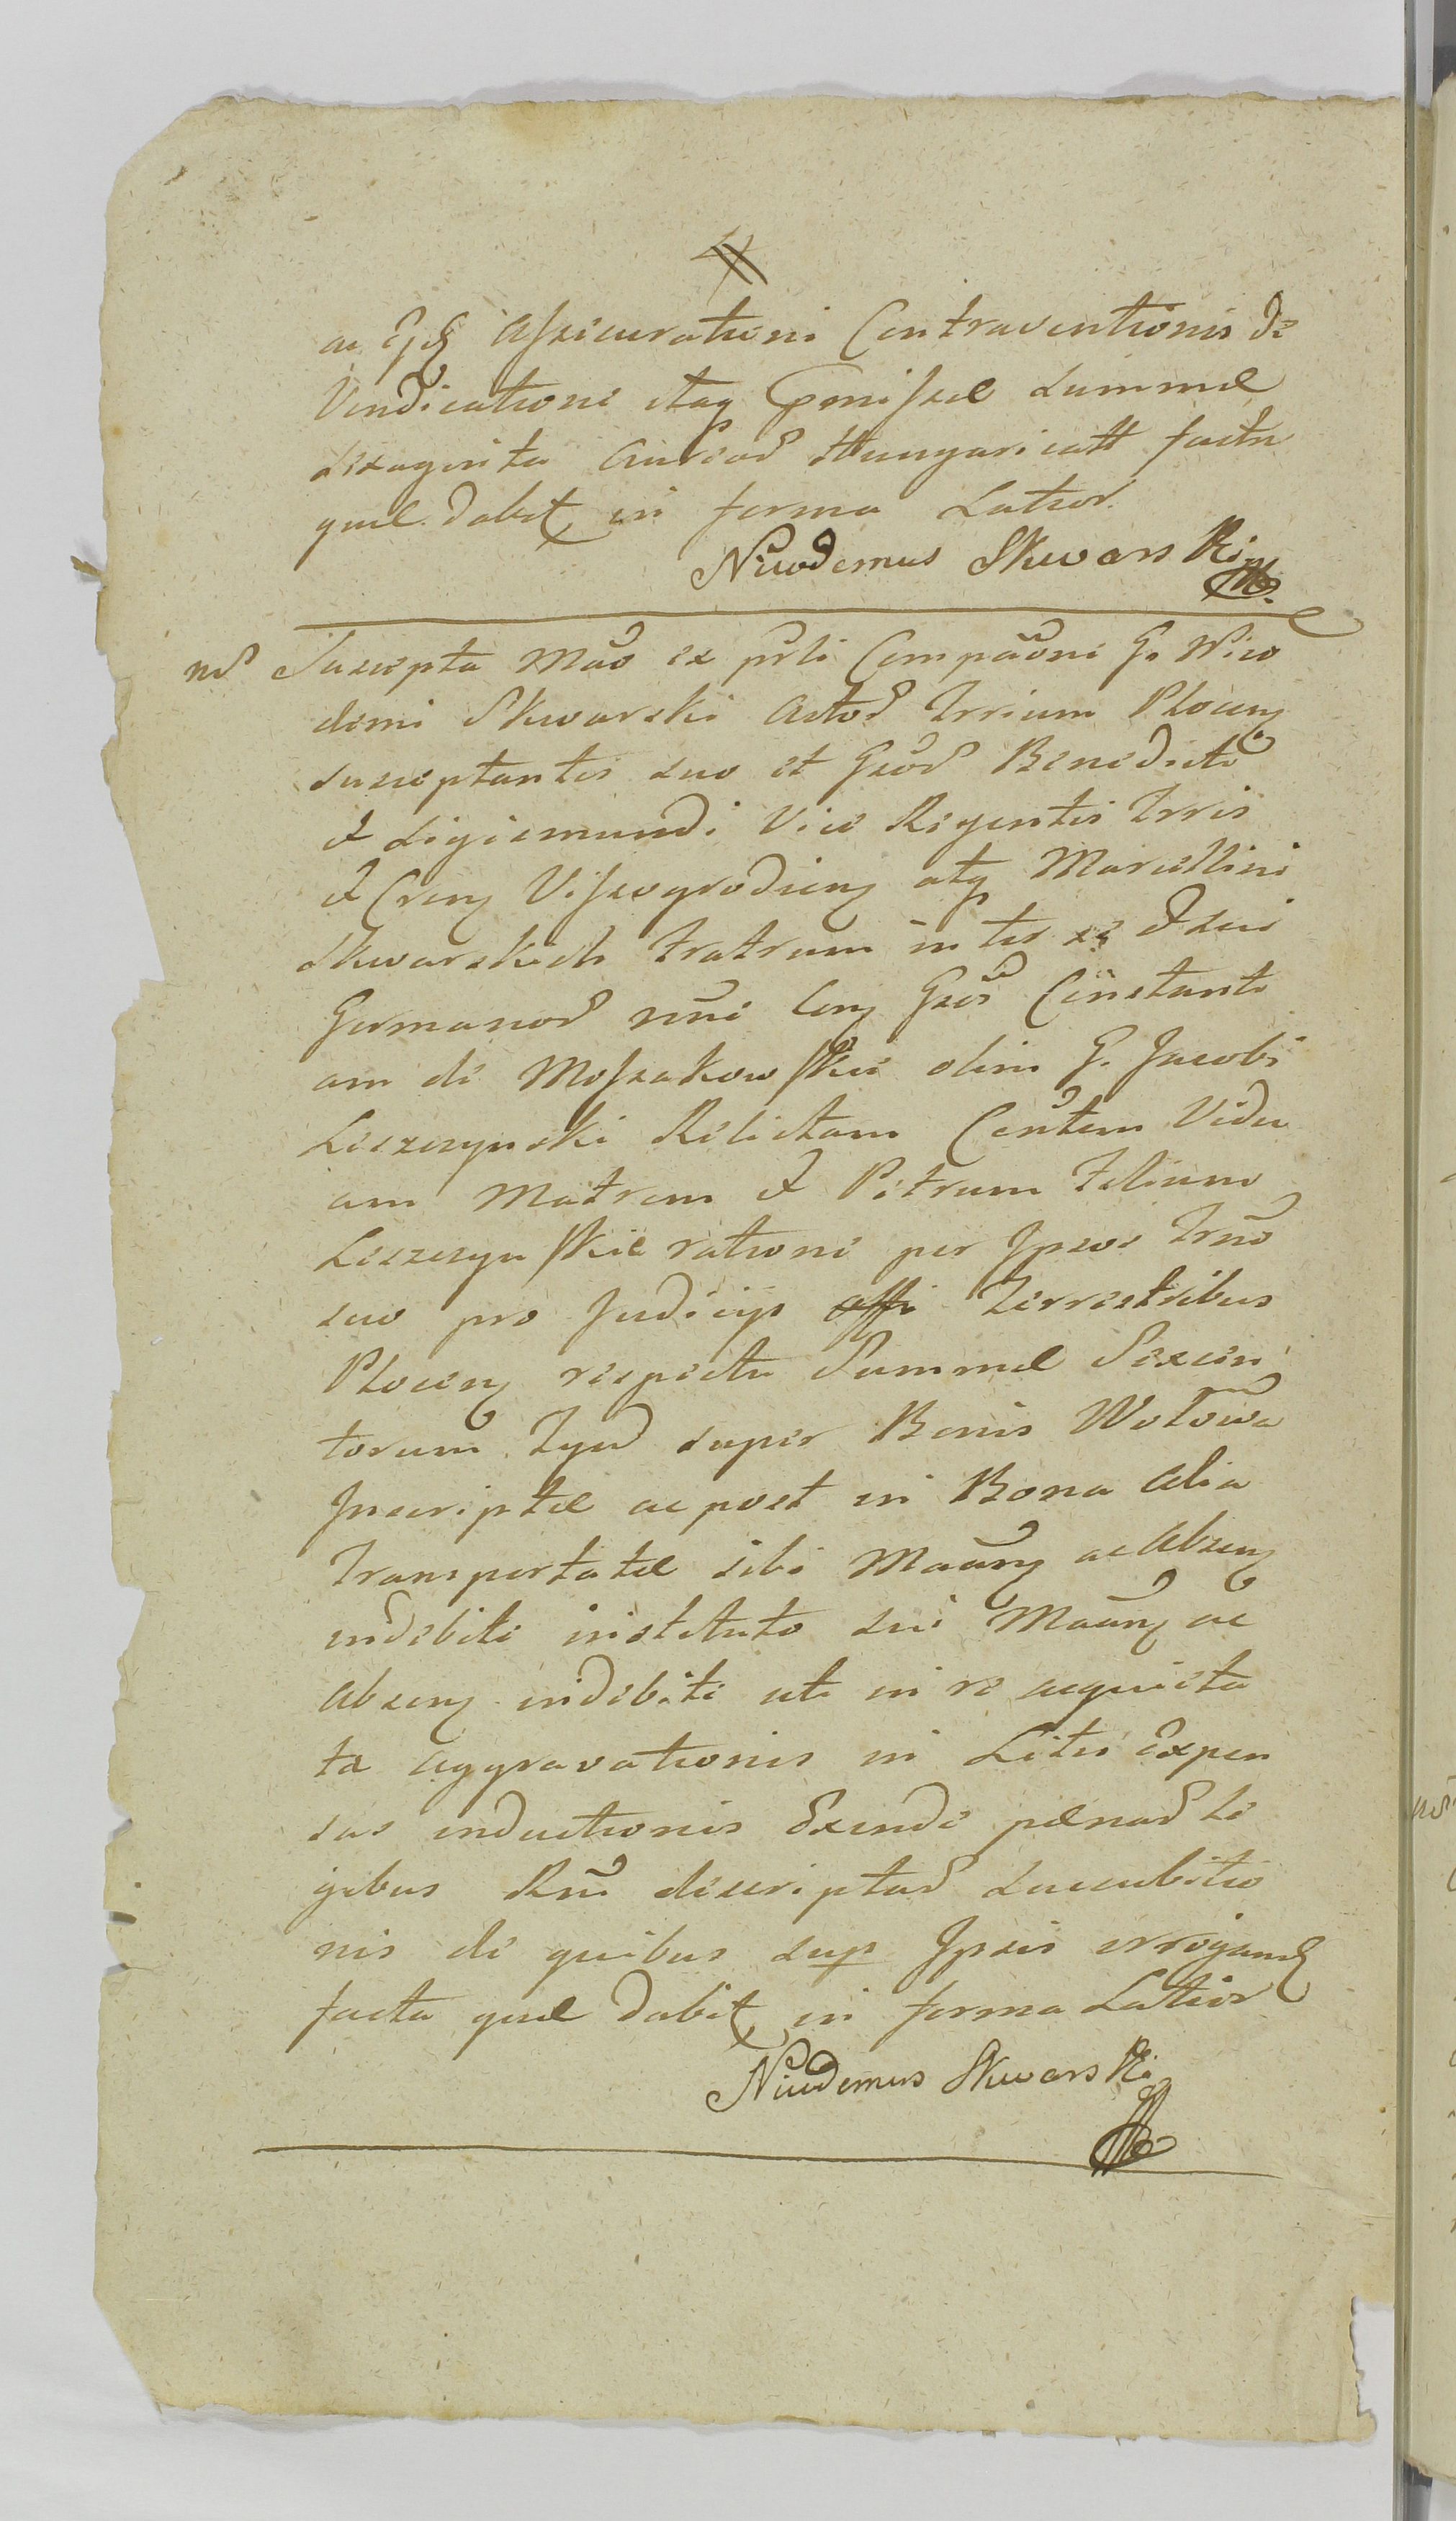 ac Assecurationi Contraventionis de
Vindicatione itaq Praemissae summae
sexaginta Aureor Hungaricall facta
quae dabit in forma Latior.
Nicodemus Skwarski
nd Suscepta Mão ex prti Compaõni G. Nico
demi Skwarski Actor Trrium Plocen
susceptantis suo et Gsor Benedicti
et Sigismundi Vice Regentis Trris
et Cren Viszogrodien atq Marcellini
Skwarskich Fratrum inter se et sui
Germanor nõi con Gsõs Constanti
am de Moszakowskie olim G. Jacobi
Leszczynski Relictam Cõntem Vidu
am Matrem et Petrum Filium
Leszczynskie ratione per Ipsos Trño
suo pro Judicijs Terrestribus
Plocen respectu Summae Sexcen
torum Tynf super Bonis Wolowa
Inscriptae ac post in Bona Alia
Transportatae sibi Maãn ac Absen
indebite instituto sui Maãn ac
absen indebite uti in re acquieta
ta aggravationis in Litis Expen
sas inductionis Exinde paenar le
gibus Rñi descriptar succubitio
nis de quibus sup Ipsis irrogand
facta quae dabit in forma Latior
Nicodemus Skwarski